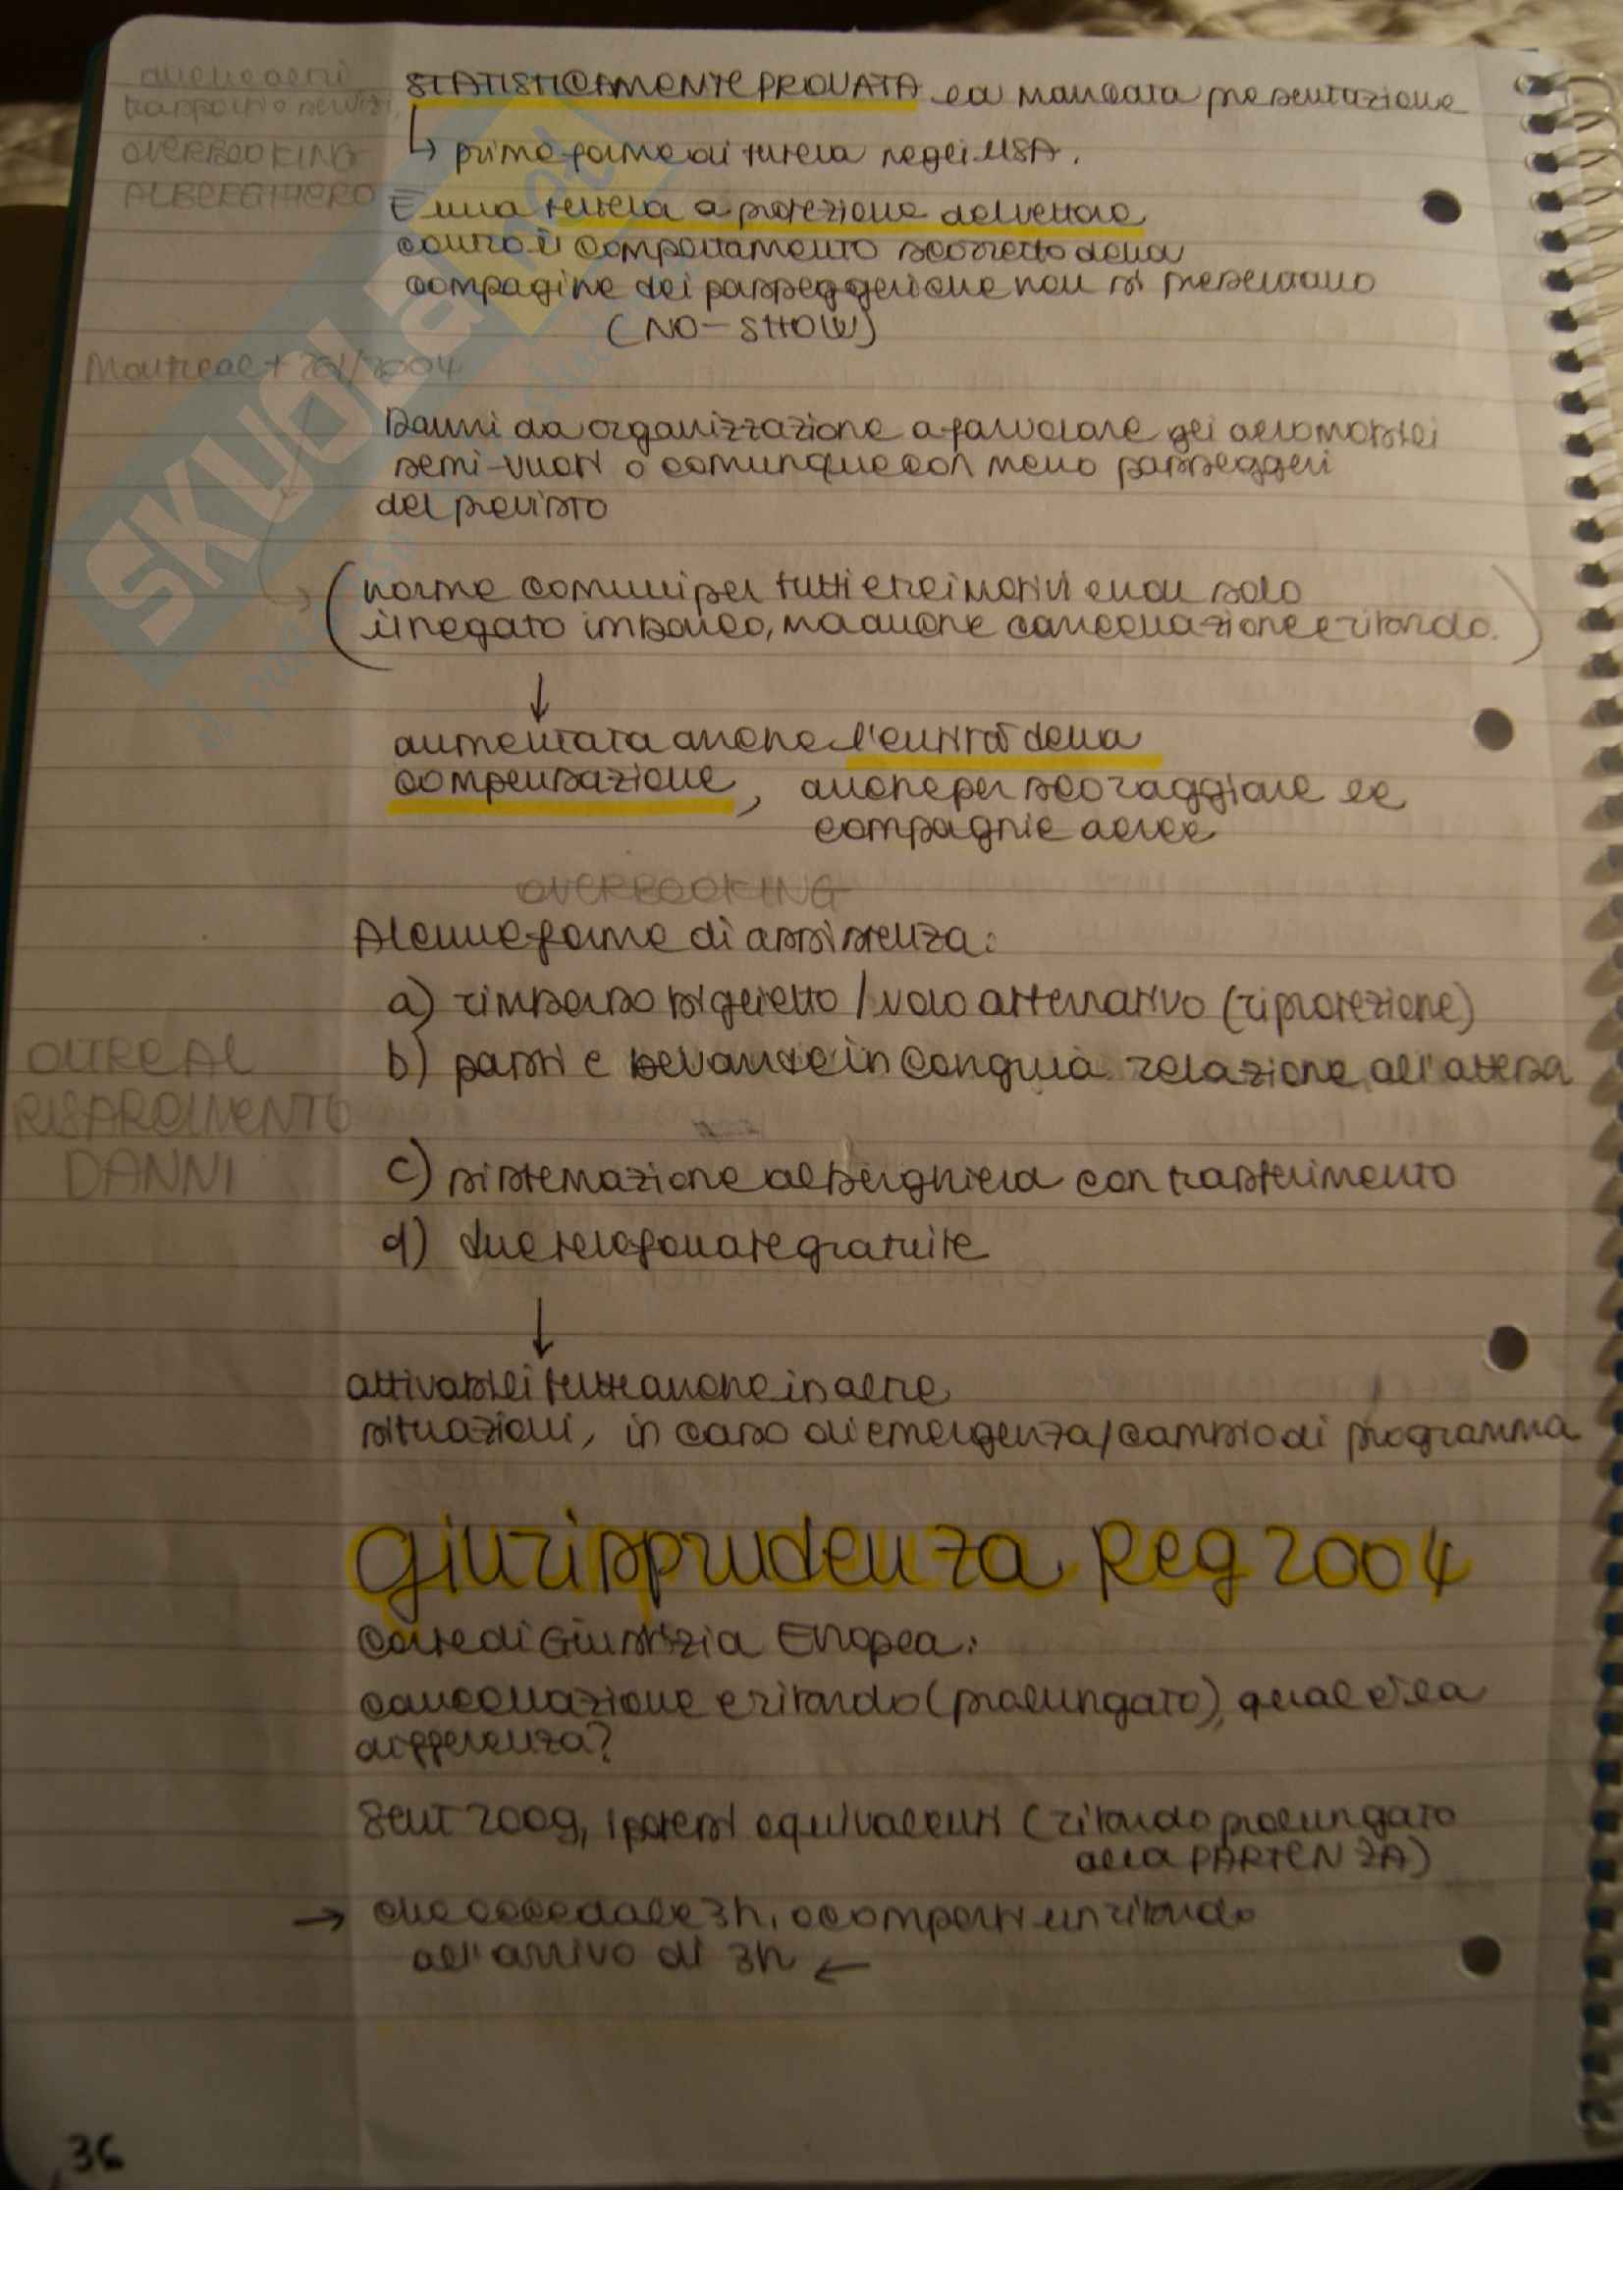 anche altri
trasporti o servizi,
OVERBOOKING
ALBERGHIERO
STATISTICAMENTE PROVATA la mancata presentazione
↳ prime forme di tutela negli USA.
È una tutela a protezione del vettore
contro il comportamento scorretto della
compagine dei passeggeri che non si presentano
(NO-SHOW)
Montreal + 261/2004
Danni da organizzazione a far volare gli aeromobili
semi-vuoti o comunque con meno passeggeri
del previsto
(norme comuni per tutti e tre i motivi e non solo
il negato imbarco, ma anche cancellazione e ritardo.)
↓
aumentata anche l'entità della
compensazione, anche per scoraggiare le
compagnie aeree
OVERBOOKING
Alcune forme di assistenza:
a) rimborso biglietto / volo alternativo (riprotezione)
b) pasti e bevande in congrua relazione all'attesa
OLTRE AL
RISARCIMENTO
DANNI
c) sistemazione alberghiera con trasferimento
d) due telefonate gratuite
↓
attivabili tutte anche in altre
situazioni, in caso di emergenza/cambio di programma
Giurisprudenza Reg 2004
Corte di Giustizia Europea:
cancellazione e ritardo (prolungato), qual è la
differenza?
Sent 2009, ipotesi equivalenti (ritardo prolungato
alla PARTENZA)
→ che ecceda le 3h, o comporti un ritardo
all'arrivo di 3h ←
36
SKUOLA.net